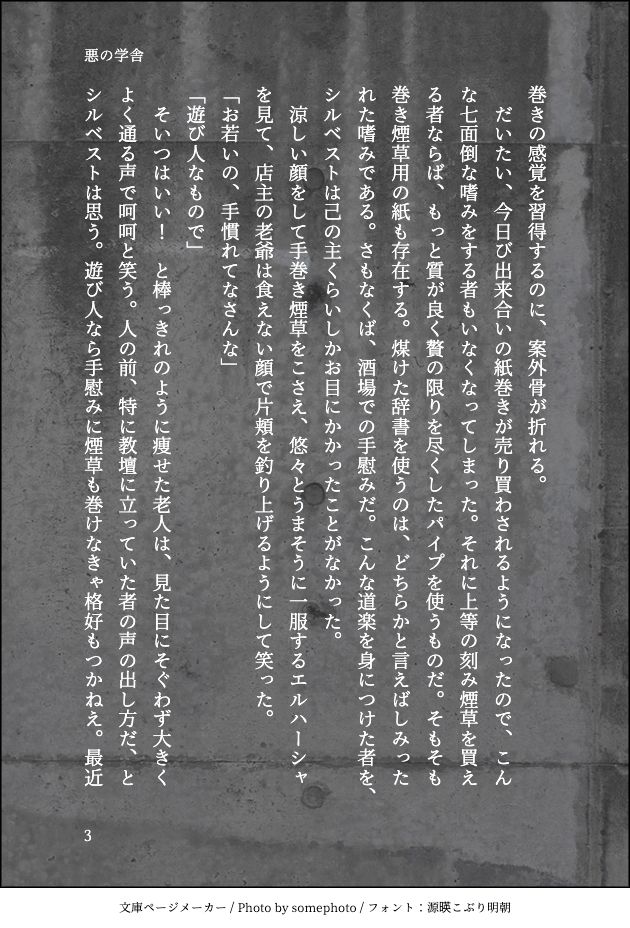 悪の学舎
巻きの感覚を習得するのに、案外骨が折れる。
　だいたい、今日び出来合いの紙巻きが売り買わされるようになったので、こん
な七面倒な嗜みをする者もいなくなってしまった。それに上等の刻み煙草を買え
る者ならば、もっと質が良く贅の限りを尽くしたパイプを使うものだ。そもそも
巻き煙草用の紙も存在する。煤けた辞書を使うのは、どちらかと言えばしみった
れた嗜みである。さもなくば、酒場での手慰みだ。こんな道楽を身につけた者を、
シルベストは己の主くらいしかお目にかかったことがなかった。
　涼しい顔をして手巻き煙草をこさえ、悠々とうまそうに一服するエルハーシャ
を見て、店主の老爺は食えない顔で片頬を釣り上げるようにして笑った。
「お若いの、手慣れてなさんな」
「遊び人なもので」
　そいつはいい！　と棒っきれのように痩せた老人は、見た目にそぐわず大きく
よく通る声で呵呵と笑う。人の前、特に教壇に立っていた者の声の出し方だ、と
シルベストは思う。遊び人なら手慰みに煙草も巻けなきゃ格好もつかねえ。最近
3
文庫ページメーカー / Photo by somephoto / フォント：源暎こぶり明朝